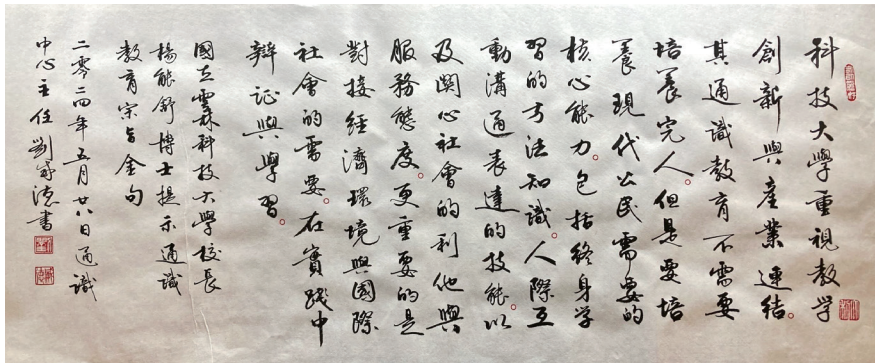 科技大學重視教学
創新與產業連結。
其通識教育不需要
培養完人。但是要培
養現代公民需要的
核心能力。包括終身学
習的方法知識。人際互
動溝通表達的技能。以
及關心社會的利他與
服務態度。更重要的是
對接經濟環境與國際
社會的需要。在實踐中
辯証與學習。
國立雲林科技大學校長
楊能舒博士提示通識
教育宗旨金句
二零二四年五月廿八日通識
中心主任劉 德書